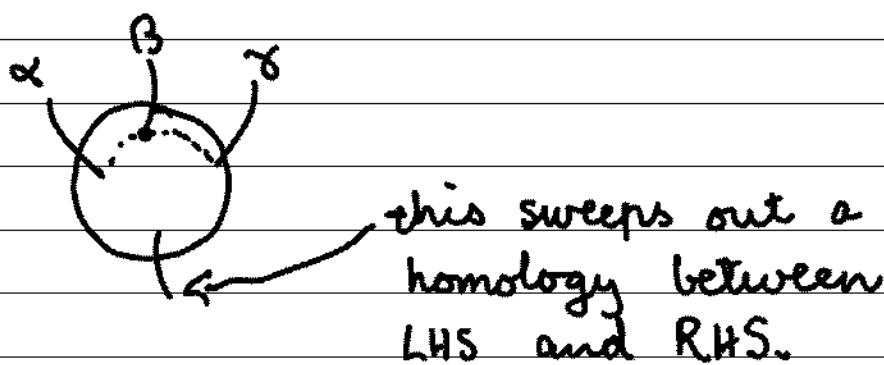 β
α γ
this sweeps out a
homology between
LHS and RHS.